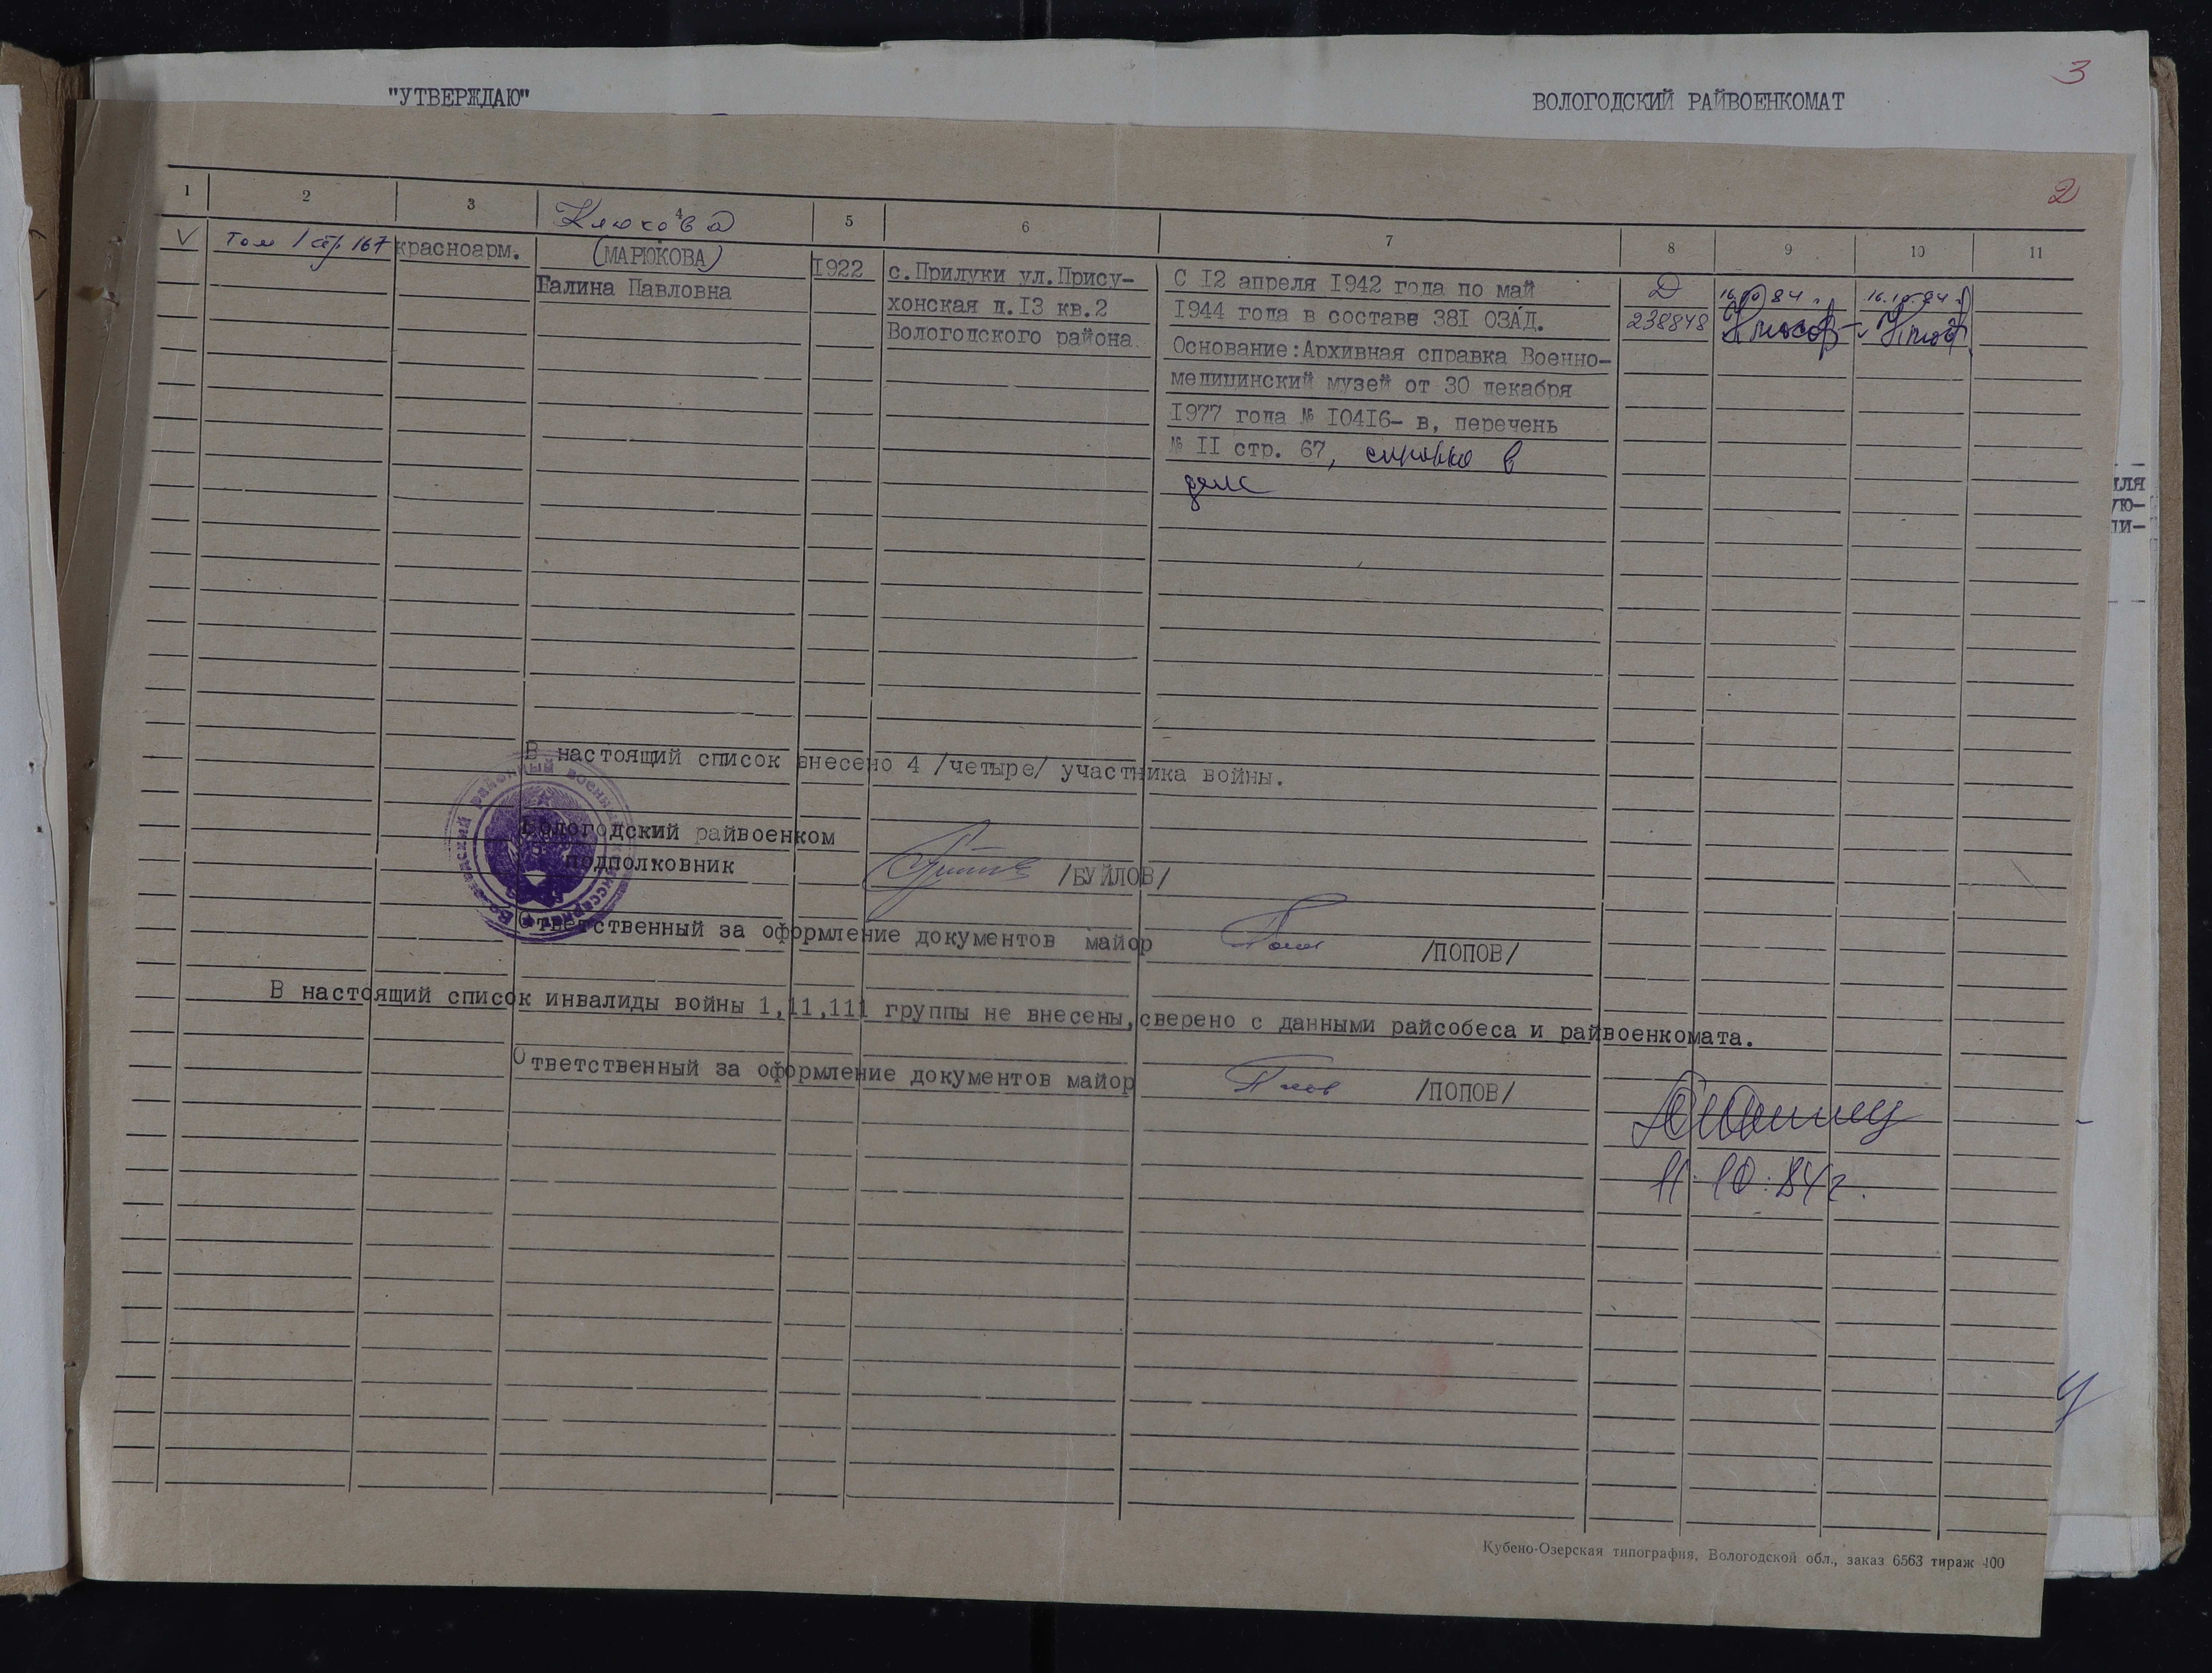 3
"УТВЕРЖДАЮ"
ВОЛОГОДСКИЙ РАЙВОЕНКОМАТ
2
1 2 3 4 5 6 7 8 9 10 11
Клюкова
V
том 1 стр 167
красноарм.
(МАРЮКОВА)
Галина Павловна
1922
с.Прилуки ул.Прису-
хонская д.13 кв.2
Вологодского района.
С 12 апреля 1942 года по май
1944 года в составе 381 ОЗАД.
Основание:Архивная справка Военно-
медицинский музей от 30 декабря
1977 года № 10416- в, перечень
№ 11 стр. 67, справка в
деле
Д
238848
16.10.84 г.
16.10.84 г.
В настоящий список внесено 4 /четыре/ участника войны.
Вологодский райвоенком
подполковник
/БУЙЛОВ/
Ответственный за оформление документов майор
/ПОПОВ/
В настоящий список инвалиды войны 1,11,111 группы не внесены,сверено с данными райсобеса и райвоенкомата.
Ответственный за оформление документов майор
/ПОПОВ/
11.10.84г.
для
ую-
ли-
Кубено-Озерская типография, Вологодской обл., заказ 6563 тираж 400